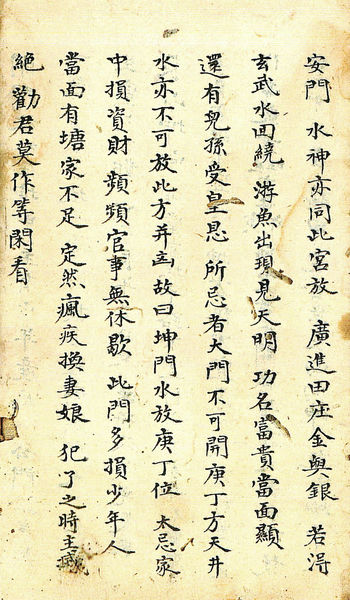 安門 水神亦同此宮放 廣進田庄金與銀 若得
玄武水囬繞 游魚出現見天明 功名富貴當面顯
還有兒孫受皇恩 所忌者大門不可開庚丁方天井
水亦不可放此方并 故曰坤門水放庚丁位 太忌家
中損資財 頻頻官事無休歇 此門多損少年人
當面有塘家不足 定然瘋疾換妻娘 犯了之時主
絕 勸君莫作等閑看